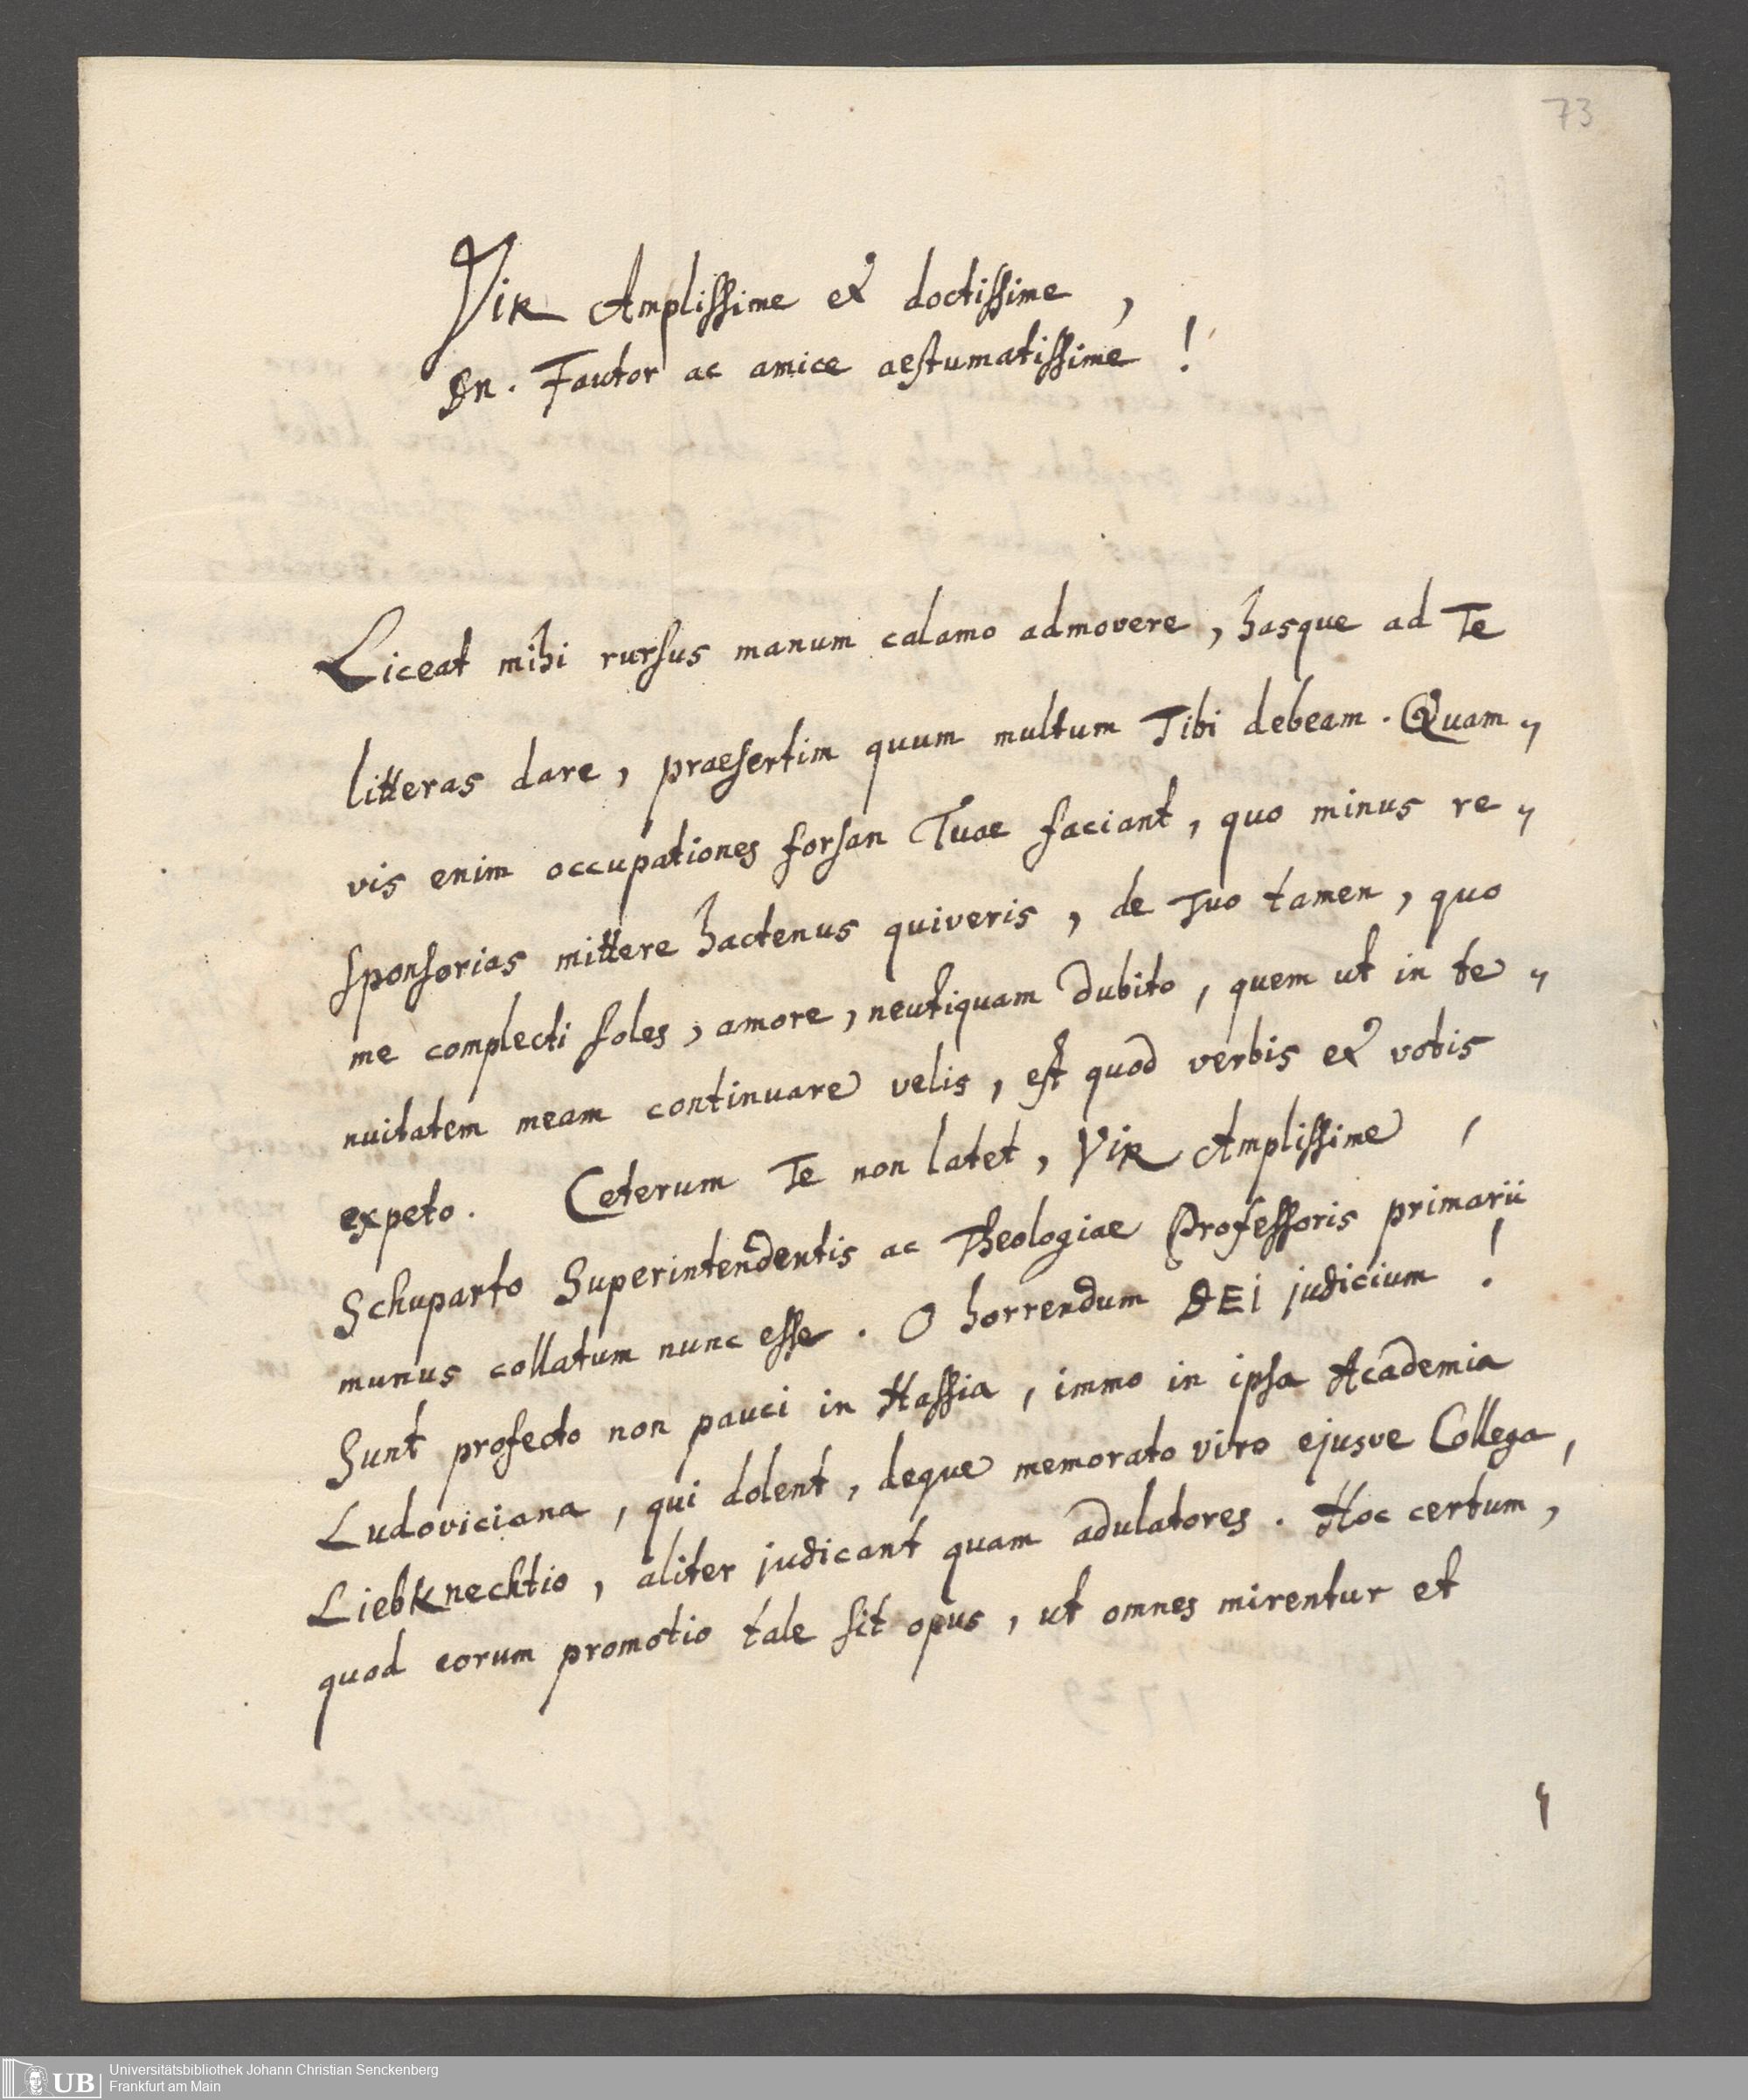 73
Vir Amplissime et doctissime,
Dn. Fautor ac amice aestumatissime!
Liceat mihi rursus manum calamo admovere, hasque ad Te
litteras dare, praesertim quum multum Tibi debeam. Quam-
vis enim occupationes forsan Tuae faciant, quo minus re-
sponsorias mittere hactenus quiveris, de Tuo tamen, quo
me complecti soles, amore, neutiquam dubito, quem ut in te-
nuitatem meam continuare velis, est quod verbis et votis
expeto. Ceterum Te non latet, Vir Amplissime,
Schuparto Superintendentis ac Theologiae Professoris primarii
munus collatum nunc esse. O horrendum DEI judicium!
Sunt profecto non pauci in Hassia, immo in ipsa Academia
Ludoviciana, qui dolent, deque memorato viro ejusve Collega,
Liebknechtio, aliter judicant quam adulatores. Hoc certum,
quod eorum promotio tale sit opus, ut omnes mirentur et
UB
Universitätsbibliothek Johann Christian Senckenberg
Frankfurt am Main